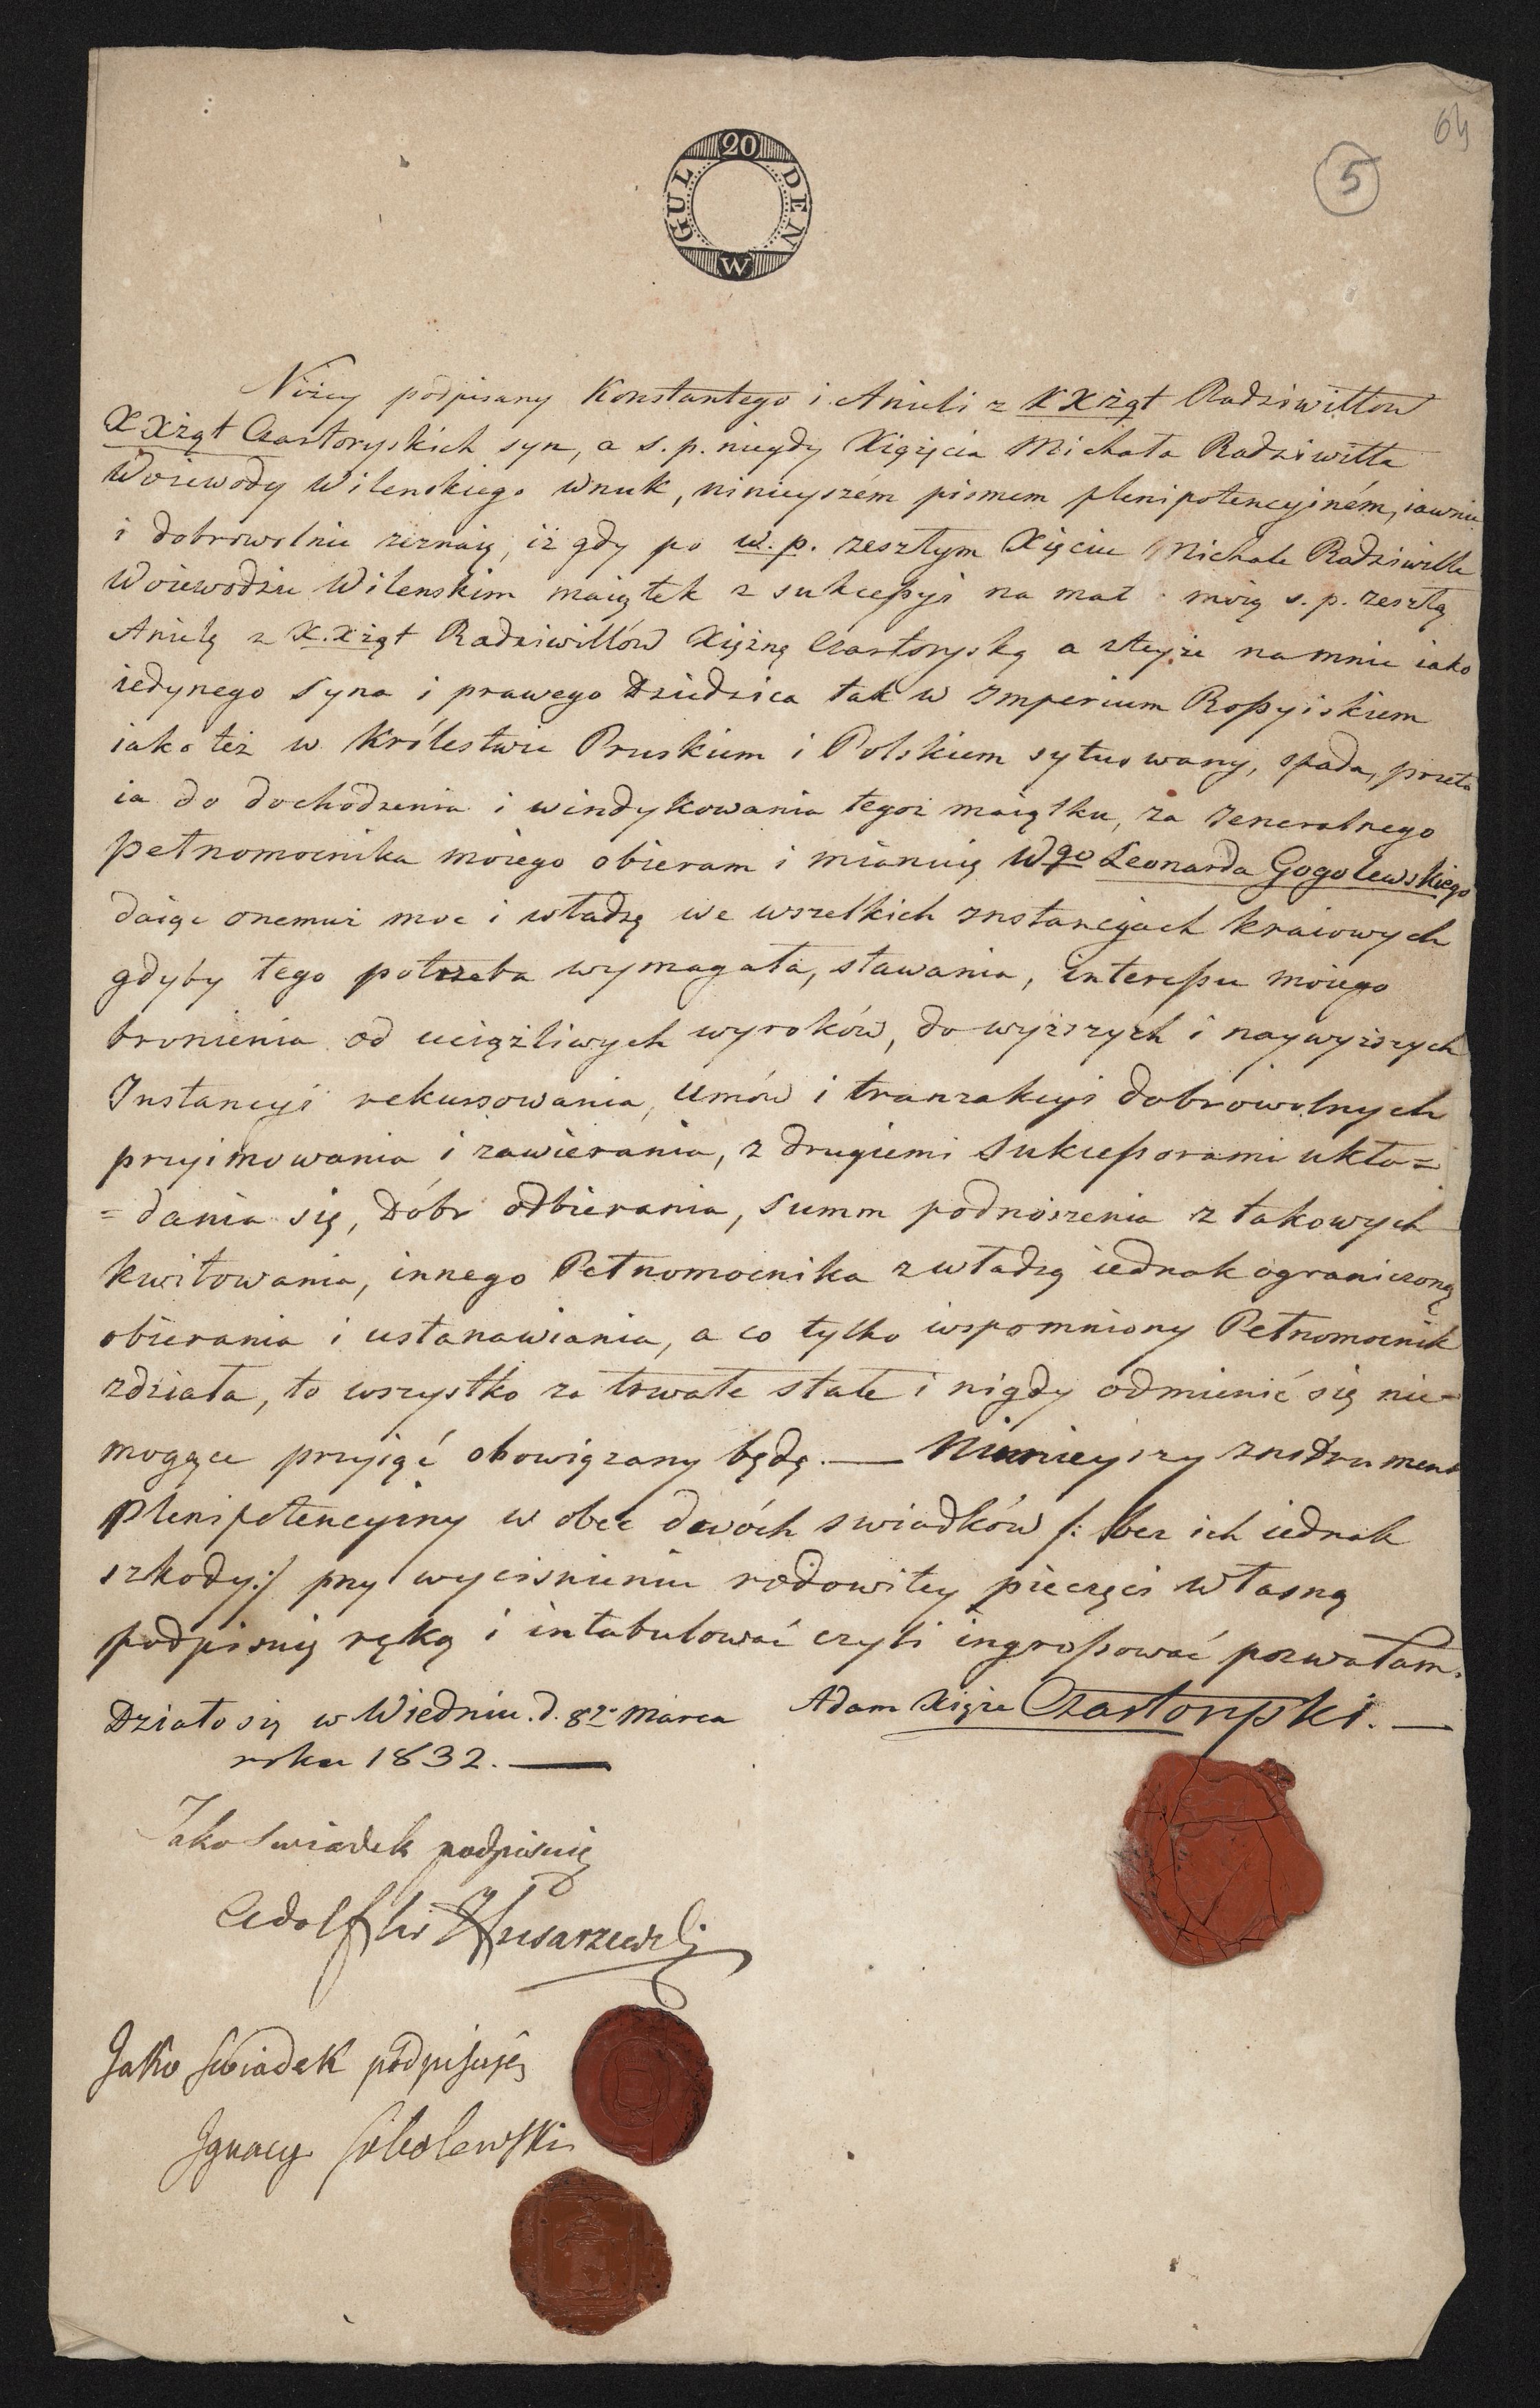 64
5
20
GULDEN
W
Niżey podpisany Konstantego i Anieli z XXiżąt Radziwiłłow
XXiżąt Czartoryskich syn, a s. p. niegdy Xiążęcia Michała Radziwiłła
Woiewody Wilenskiego wnuk, ninieyszém pismem plenipotencyiném, iawnie
i dobrowolnie zeznaię, iż gdy po w. p. zeszłym Xięciu Michale Radziwille
Woiewodzie Wilenskim maiątek z sukceßyi na mat moią s. p. zeszłą
Anielę z X.Xżąt Radziwiłłów Xiężnę Czartoryską a z teyże na mnie iako
iedynego Syna i prawego Dziedzica tak w Imperium Roßyiskiem
iako też w Królestwie Pruskiem i Polskiem sytuowany, spada, przeto
ia do dochodzenia i windykowania tegoż maiątku, za Jeneralnego
pełnomocnika moiego obieram i mianuię Wgo Leonarda Gogolewskiego
daiąc onemuż moc i władzę we wszelkich Instancyach kraiowych
gdyby tego potrzeba wymagała, stawania, intereßu moiego
bronienia od uciążliwych wyroków, do wyższych i naywyższych
Instancyi rekursowania, Umów i tranzakcyi dobrowolnych
przyimowania i zawierania, z drugiemi Sukceßorami ukła=
=dania się, Dóbr odbierania, Summ podnoszenia z takowych
kwitowania, innego Pełnomocnika z władzą iednak ograniczoną
obierania i ustanawiania, a co tylko wspomniony Pełnomocnik
zdziała, to wszystko za trwałe stałe i nigdy odmienić się nie=
mogące przyiąć obowiązany będę. — Ninieyszy Instrument
plenipotencyiny w obec dwóch swiadków /: bez ich iednak
szkody :/ przy wycisnieniu rodowitey pieczęci własną
podpisuię ręką i intabulować czyli ingroßować pozwalam.
Działo się w Wiedniu. d. 8go Marca
roku 1832. —
Adam Xiąże Czartoryski. —
Jako Swiadek podpisuię
Adolf Husarzewski
Jako Swiadek podpisuję
Ignacy Sobolewski